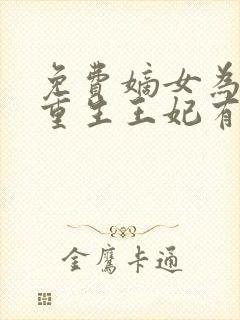 免费嫡女为
重生王妃有
金鹰卡通